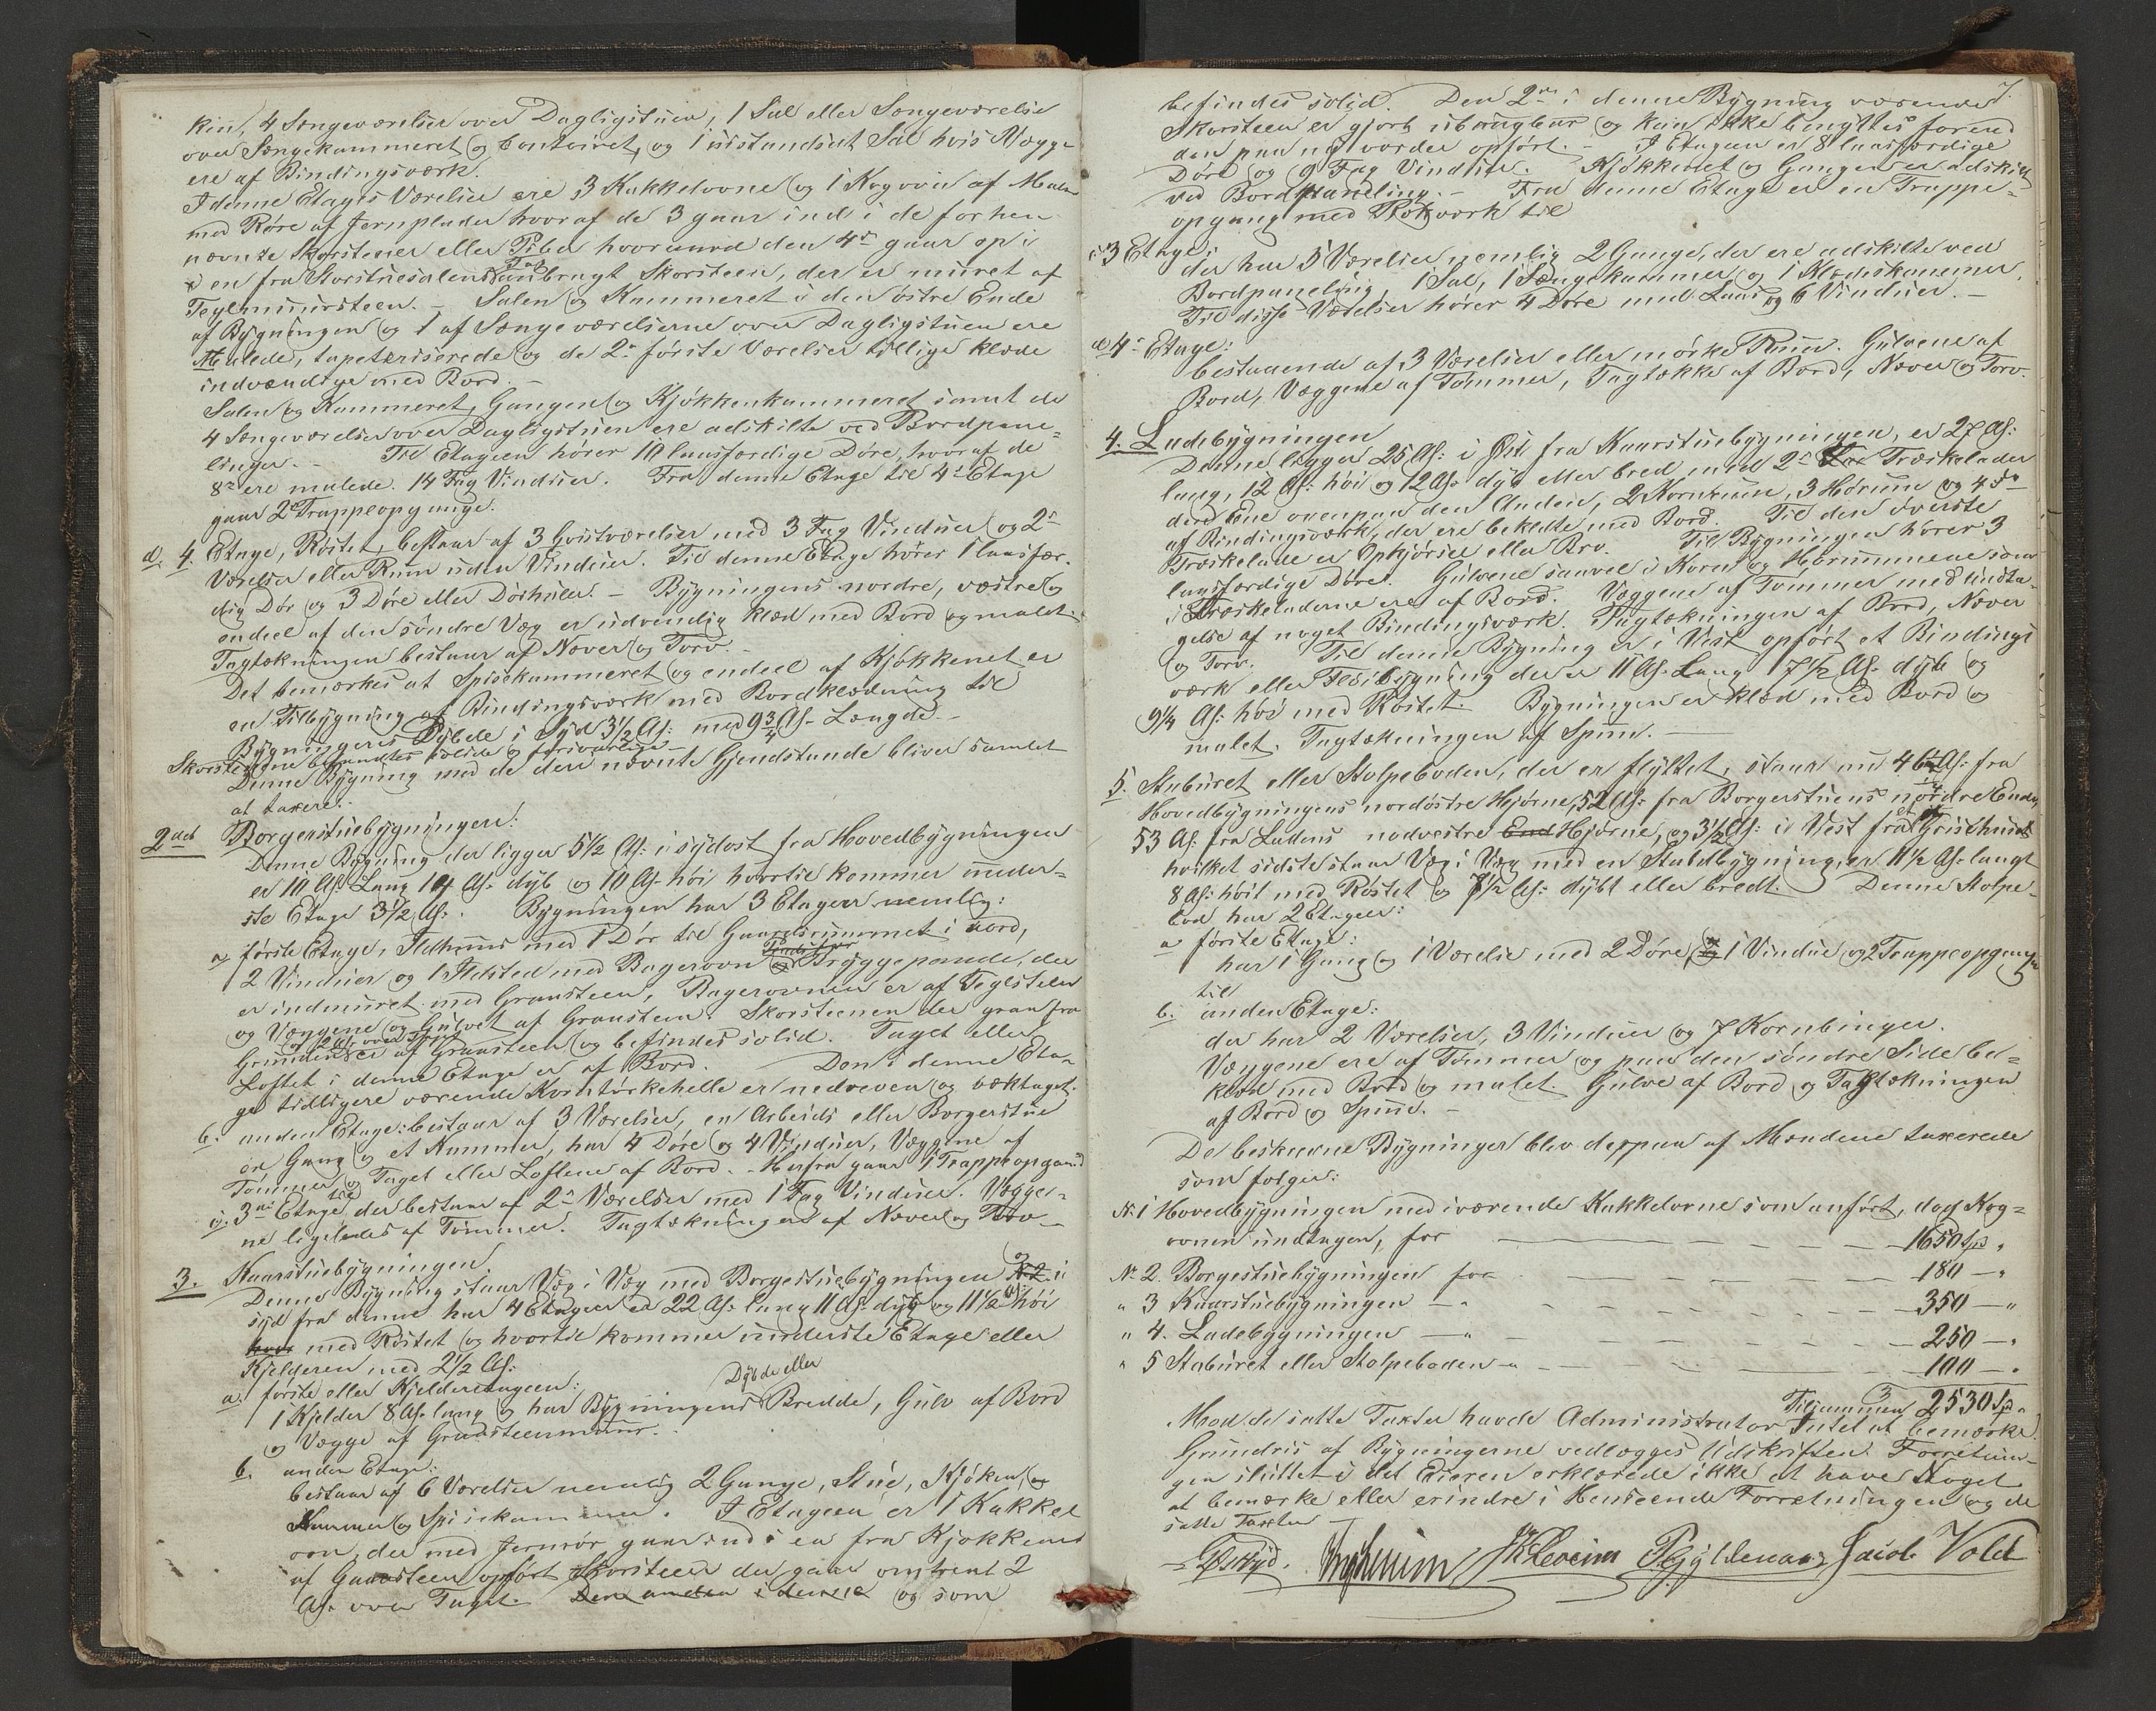 kin, 4 Sængeværelser over Dagligstuen, 1 Sal eller Sængeværelse
over Sængekammeret og Contoiret, og 1 uistandsat Sal hvis Vægge
ere af Bindingsværk.
I denne Etages Værelser ere 3 Kakkelovne og 1 Kogovn af Malm
med Røre af Jernplader hvoraf de 3 gaar ind i de forhen
nævnte Skorstener eller Piber hvorimod den 4de gaar op i
en fra Storstuesalens anbragt Skorsteen, der er muret af
Teglmuursteen. – Salen og Kammeret i den østre Ende
af Bygningen og 1 af Sængeværelserne over Dagligstuen ere
Malede, tapetserisede og de 2de første Værelser tillige klæde
indvændige med Bord. –
Salen og Kammeret, Gangen og Kjøkkenkammeret samt de
4 Sængeværelser over Dagligstuen ere adskilte ved Bordpane=
linger. – Til Etagen hører 10 laasfærdige Døre, hvoraf de
8te ere malede. 14 Fag Vinduer. Fra denne Etage til 4de Etage
gaar 2de Trappeopgange.
d. 4. Etage, Røstet, bestaar af 3 Qvistværelser med 3 Fag Vinduer og 2de
Værelser eller Rum uden Vinduer. Til denne Etage hører 1 laasfær=
dig Dør og 3 Døre eller Dørhuler. – Bygningens nordre, vestre og
endeel af den søndre Væg er udvendig klæd med Bord og malet.
Tagtækningen bestaar af Næver og Torv. –
Det bemærkes at Spisekammeret og endeel af Kjøkkenet er
en Tilbygning af Bindingsværk med Bordklædning til
Bygningens Dybde i Syd 3½ Al: med 9¾ Al. Længde. –
Skorstenene befandtes solide og forsvarlige –
Denne Bygning med de deri nævnte Gjendstande bliver samlet
at taxere.
2det Borgerstuebygningen:
Denne Bygning der ligger 5½ Al: i sydost fra Hovedbygningen
er 10 Al: Lang 10 Al. dyb og 10 Al. høi hvortil kommer under=
ste Etage 3½ Al. Bygningen har 3 Etager nemlig:
a, første Etage, Ildhuus med 1 Dør til Gaardsrummet i nord,
2 Vinduer og 1 Ildsted med Bagerovn og Bryggepande, der
er indmuret med Graasteen, Bagerovnen er af Teglsteen
og Vængene og Gulvet af Graasteen. Skorsteenen der gaar fra
Grunden og 2 Al. over Taget er af Graasteen og befindes solid. Taget eller
Loftet i denne Etage er af Bord. Den i denne Eta=
ge tidligere værende Korntørkehelle er nedreven og væktaget.
b. anden Etage: bestaar af 3 Værelser, en Arbeids eller Borgerstue
en Gang og et Kammer, har 4 Døre og 4 Vinduer, Væggene af
Tømmer og Taget eller Loftene af Bord. – Herfra gaar 1 Trappeopgang
til
c. 3die Etage der bestaar af 2de Værelser med 1 Fag Vinduer. Vægge=
ne ligeledes af Tømmer. Tagtækningen af Næver og Torv –
3. Kaarstuebygningen.
Denne Bygning staar Væg i Væg med Borgestuebygningen og i
syd fra denne har 4 Etager er 22 Al: lang 11 Al. dyb og 11½ Al: høi
med Røstet og hvortil kommer underste Etage eller
Kjelderen med 2½ Al:
a. første eller Kjelderetagen:
Dybde eller
1 Kjelder 8 Al. lang og har Bygningens Bredde, Gulv af Bord
og Vægge af Graasteensmuur.
b. anden Etage:
bestaar af 6 Værelser nemlig 2 Gange, Stue, Kjøken og
Kammer og Spisekammer. I Etagen er 1 Kakkel
ovn der med Jernrør gaar ind i en fra Kjøkkenet
af Graasteen opført Skorsteen der gaar omtrent 2
Al. over Taget. Den anden i denne og som
7.
befindes solid. Den 2den i denne Bygning værende
Skorsteen er gjort ubrugbar og kan ikke benyttes forend
den paa ny vorder opført. – I Etagen er 8 laasfærdige
Døre og 9 Fag Vinduer. Kjøkkenet og Gangen er adskildt
ved Bordpaneling. – Fra denne Etage er en Trappe=
opgang med Rækværk til
c 3 Etage:
der har 5 Værelser nemlig 2 Gange, der ere adskilte ved
Bordpaneling, 1 Sal, 1 Sængekammer og 1 Klædeskammer.
Til disse Værelser hører 4 Døre med Laas og 6 Vinduer. –
d 4de Etage:
bestaaende af 3 Værelser eller mørke Rum. Gulvene af
Bord, Væggene af Tømmer, Tagtække af Bord, Næver og Torv.
4. Ladebygningen
Denne ligger 25 Al: i Øst fra Kaarstuebygningen, er 27 Al:
lang, 12 Al: høi og 12 Al. dyb eller bred med 2de Træskelader
den Ene ovenpaa den Anden, 2 Kornrum, 3 Hørum og 4 do
af Bindingsværk, der ere beklædte med Bord. Til den øverste
Træskelade er Opkjørsel eller Bro. Til Bygningen hører 3
laasfærdige Døre. Gulvene saavel i Korn og Hørummene som
i Træskeladerne ere af Bord. Væggene af Tømmer med Undta=
gelse af noget Bindingsværk. Tagtækningen af Bord, Næver
og Torv. Til denne Bygning er i Vest opført et Bindings
værk eller Flesbygning der er 11 Al. Lang 7½ Al. dyb og
9¼ Al: høi med Røstet. Bygningen er klæd med Bord og
malet. Tagtækningen af Spaan. –
5. Staburet eller Stolpeboden, der er flyttet, staar nu 46 Al: fra
Hovedbygningens nordøstre Hjørne, 52 Al. fra Borgerstuens nordre Ende,
53 Al. fra Ladens nodvestre Hjørne, og 3½ Al: i Vest fra et Grisehuus
hvilket sidste staar Væg i Væg med en Staldbygning, er 11½ Al. langt
8 Al: høit med Røstet og 7½ Al: dybt eller bredt. Denne Stolpe=
bod har 2 Etager:
a første Etage:
har 1 Gang og 1 Værelse med 2 Døre, 1 Vindue og 2 Trappeopgange
til
b. anden Etage:
der har 2 Værelser, 3 Vinduer og 7 Kornbinger.
Væggene ere af Tømmer og paa den søndre Side be=
klæd med Bord og malet. Gulve af Bord og Tagtækningen
af Bord og Spaan. –
De beskrevne Bygninger blev derpaa af Mændene taxerede
som følger:
No 1 Hovedbygningen med iværende Kakkelovne som anført, dog Kog=
ovnen undtagen, for – – – 1650 Spd „
No 2. Borgestuebygningen for – – – 180 – „
„ 3 Kaarstuebygningen – „ – – – 350 – „
„ 4. Ladebygningen – „ – – – 250 – „
„ 5 Staburet eller Stolpeboden – „ – – – 100 – „
Tilsammen 2530 Spd „
Mod de satte Taxter havde Administrator Intet at bemærke.
Grundris af Bygningerne vedlægges Udskriften. Forretnin=
gen sluttet i det Eieren erklærede ikke at have Noget
at bemærke eller erindre i Henseende Forretningen og de
satte Taxter –
Jacob Vold